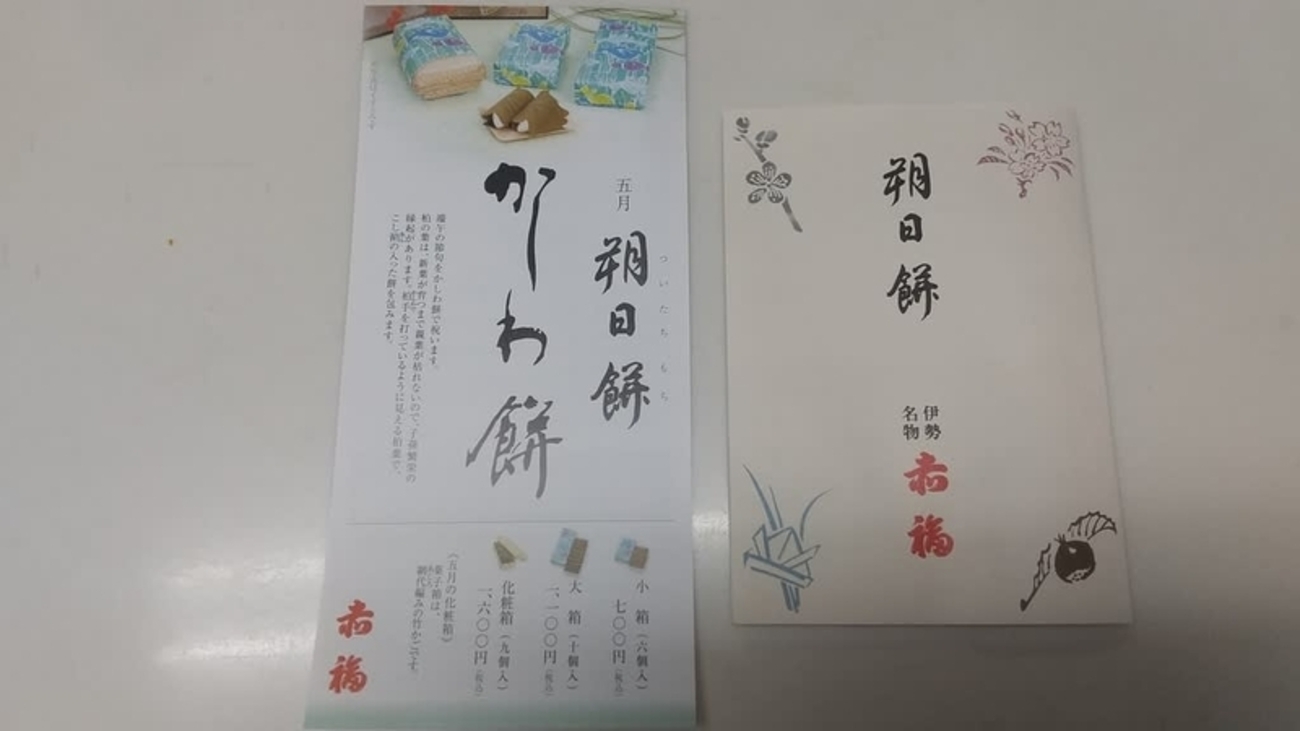 五月
朔日餅
ついたちもち
かしわ餅
端午の節句をかしわ餅で祝います。
柏の葉は、新葉が育つまで親葉が枯れないので、子孫繁栄の
縁起があります。柏手を打っているように見える柏葉で、
こし餡の入った餅を包みます。
小箱(六個入)
七〇〇円(税込)
大箱(十個入)
一、一〇〇円(税込)
化粧箱(九個入)
一、六〇〇円(税込)
(五月の化粧箱)
菓子箱は、
網代編みの竹かごです。
赤福
朔日餅
伊勢
名物
赤福